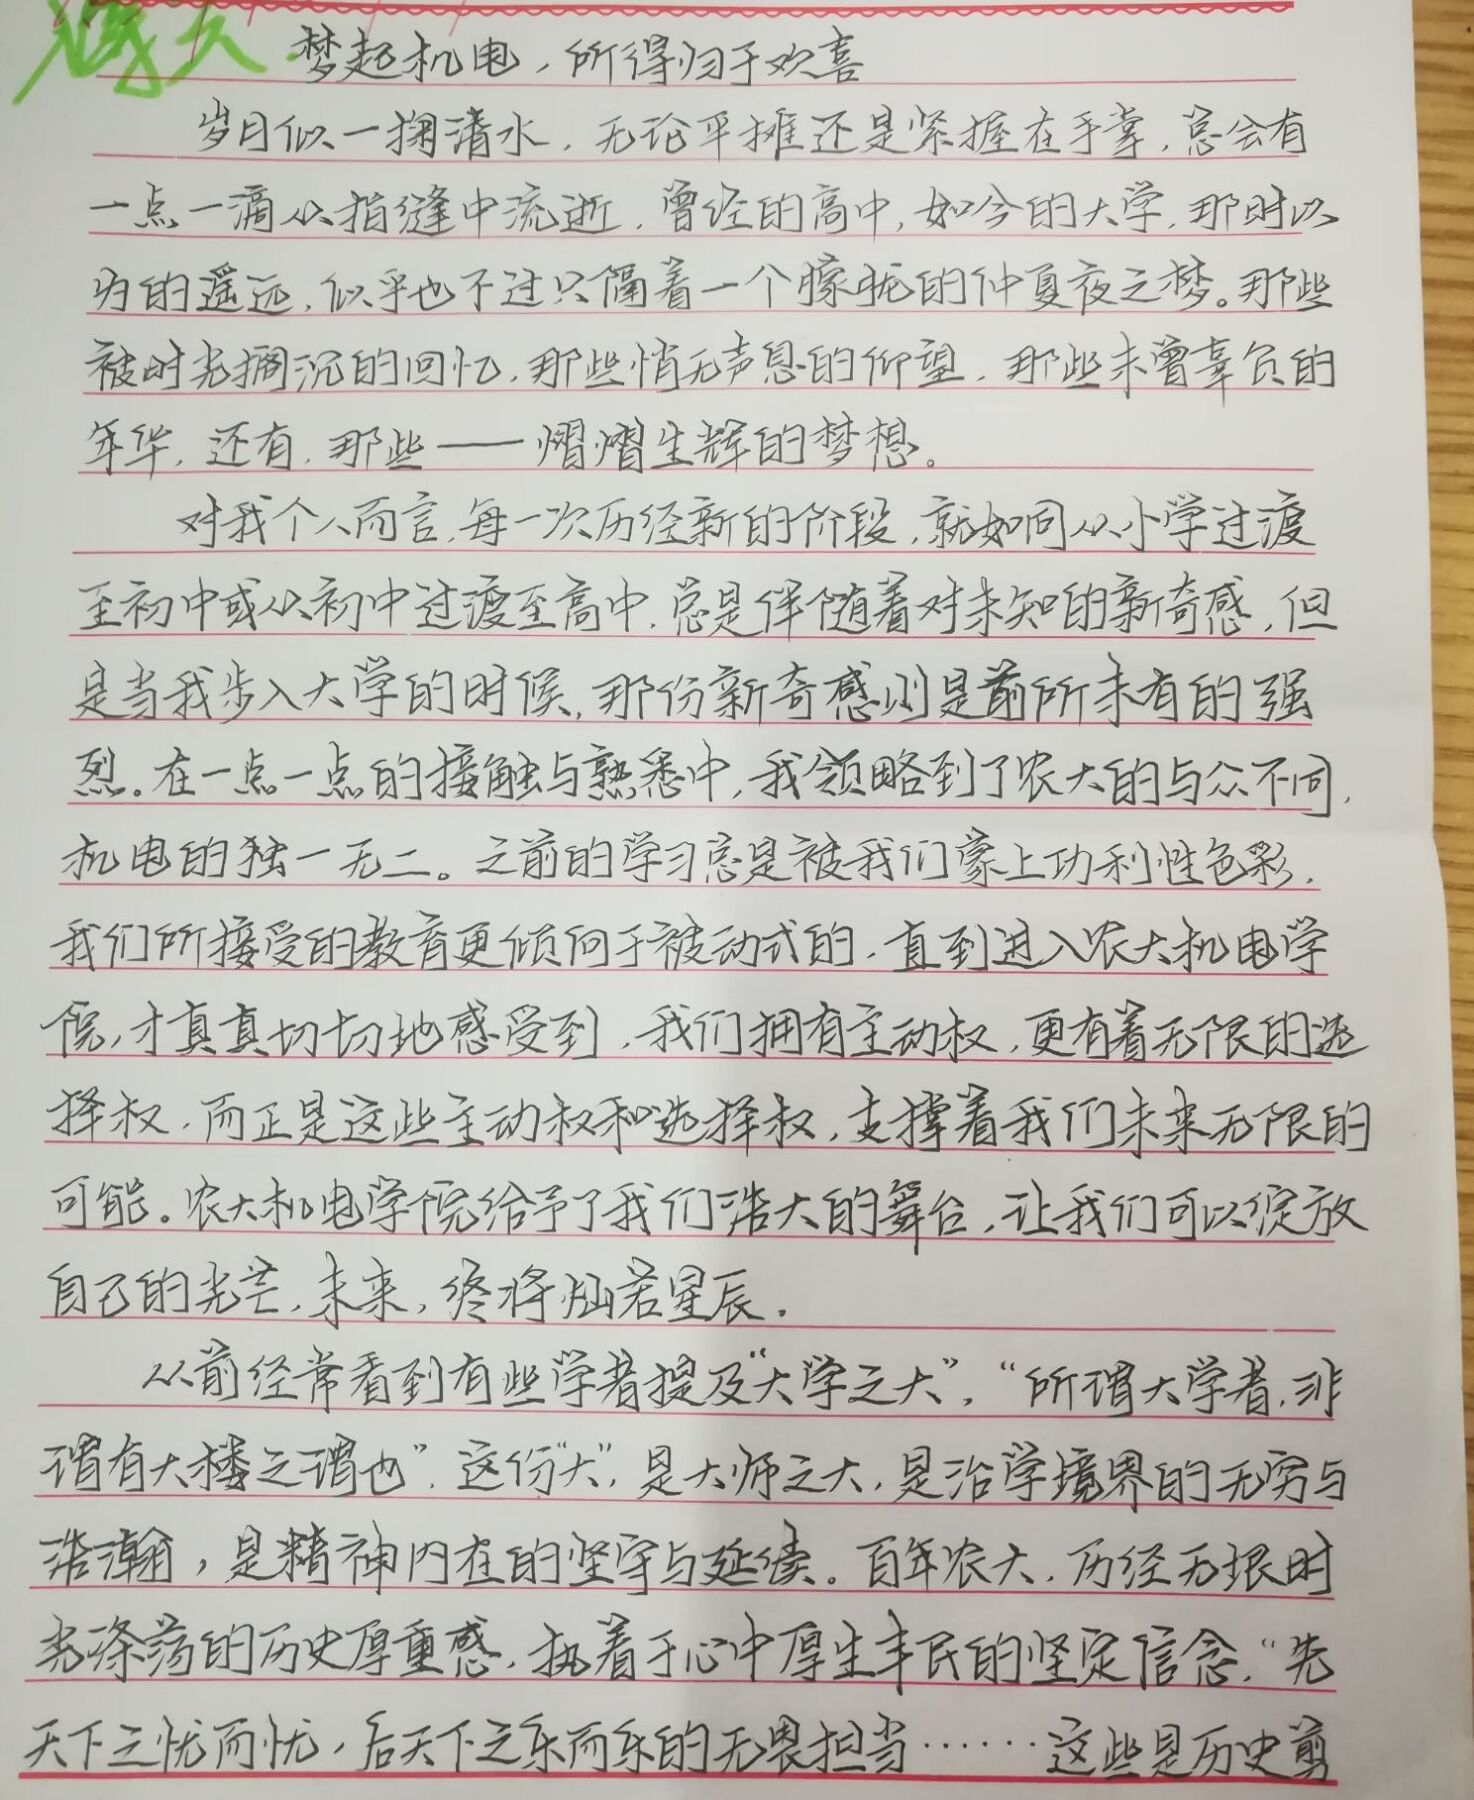 梦起机电，所得归于欢喜
岁月似一掬清水，无论平摊还是紧握在手掌，总会有
一点一滴从指缝中流逝，曾经的高中，如今的大学，那时以
为的遥远，似乎也不过只隔着一个朦胧的仲夏夜之梦。那些
被时光搁沉的回忆，那些悄无声息的仰望，那些未曾辜负的
年华，还有，那些——熠熠生辉的梦想。
对我个人而言，每一次历经新的阶段，就如同从小学过渡
至初中或从初中过渡至高中，总是伴随着对未知的新奇感，但
是当我步入大学的时候，那份新奇感则是前所未有的强
烈。在一点一点的接触与熟悉中，我领略到了农大的与众不同，
机电的独一无二。之前的学习总是被我们蒙上功利性色彩，
我们所接受的教育更倾向于被动式的，直到进入农大机电学
院，才真真切切地感受到，我们拥有主动权，更有着无限的选
择权，而正是这些主动权和选择权，支撑着我们未来无限的
可能。农大机电学院给予了我们浩大的舞台，让我们可以绽放
自己的光芒，未来，终将灿若星辰。
从前经常看到有些学者提及“大学之大”，“所谓大学者，非
谓有大楼之谓也”，这份“大”，是大师之大，是治学境界的无穷与
浩瀚，是精神内在的坚守与延续。百年农大，历经无垠时
光涤荡的历史厚重感，执着于心中厚生丰民的坚定信念，“先
天下之忧而忧，后天下之乐而乐的无畏担当……这些是历史剪